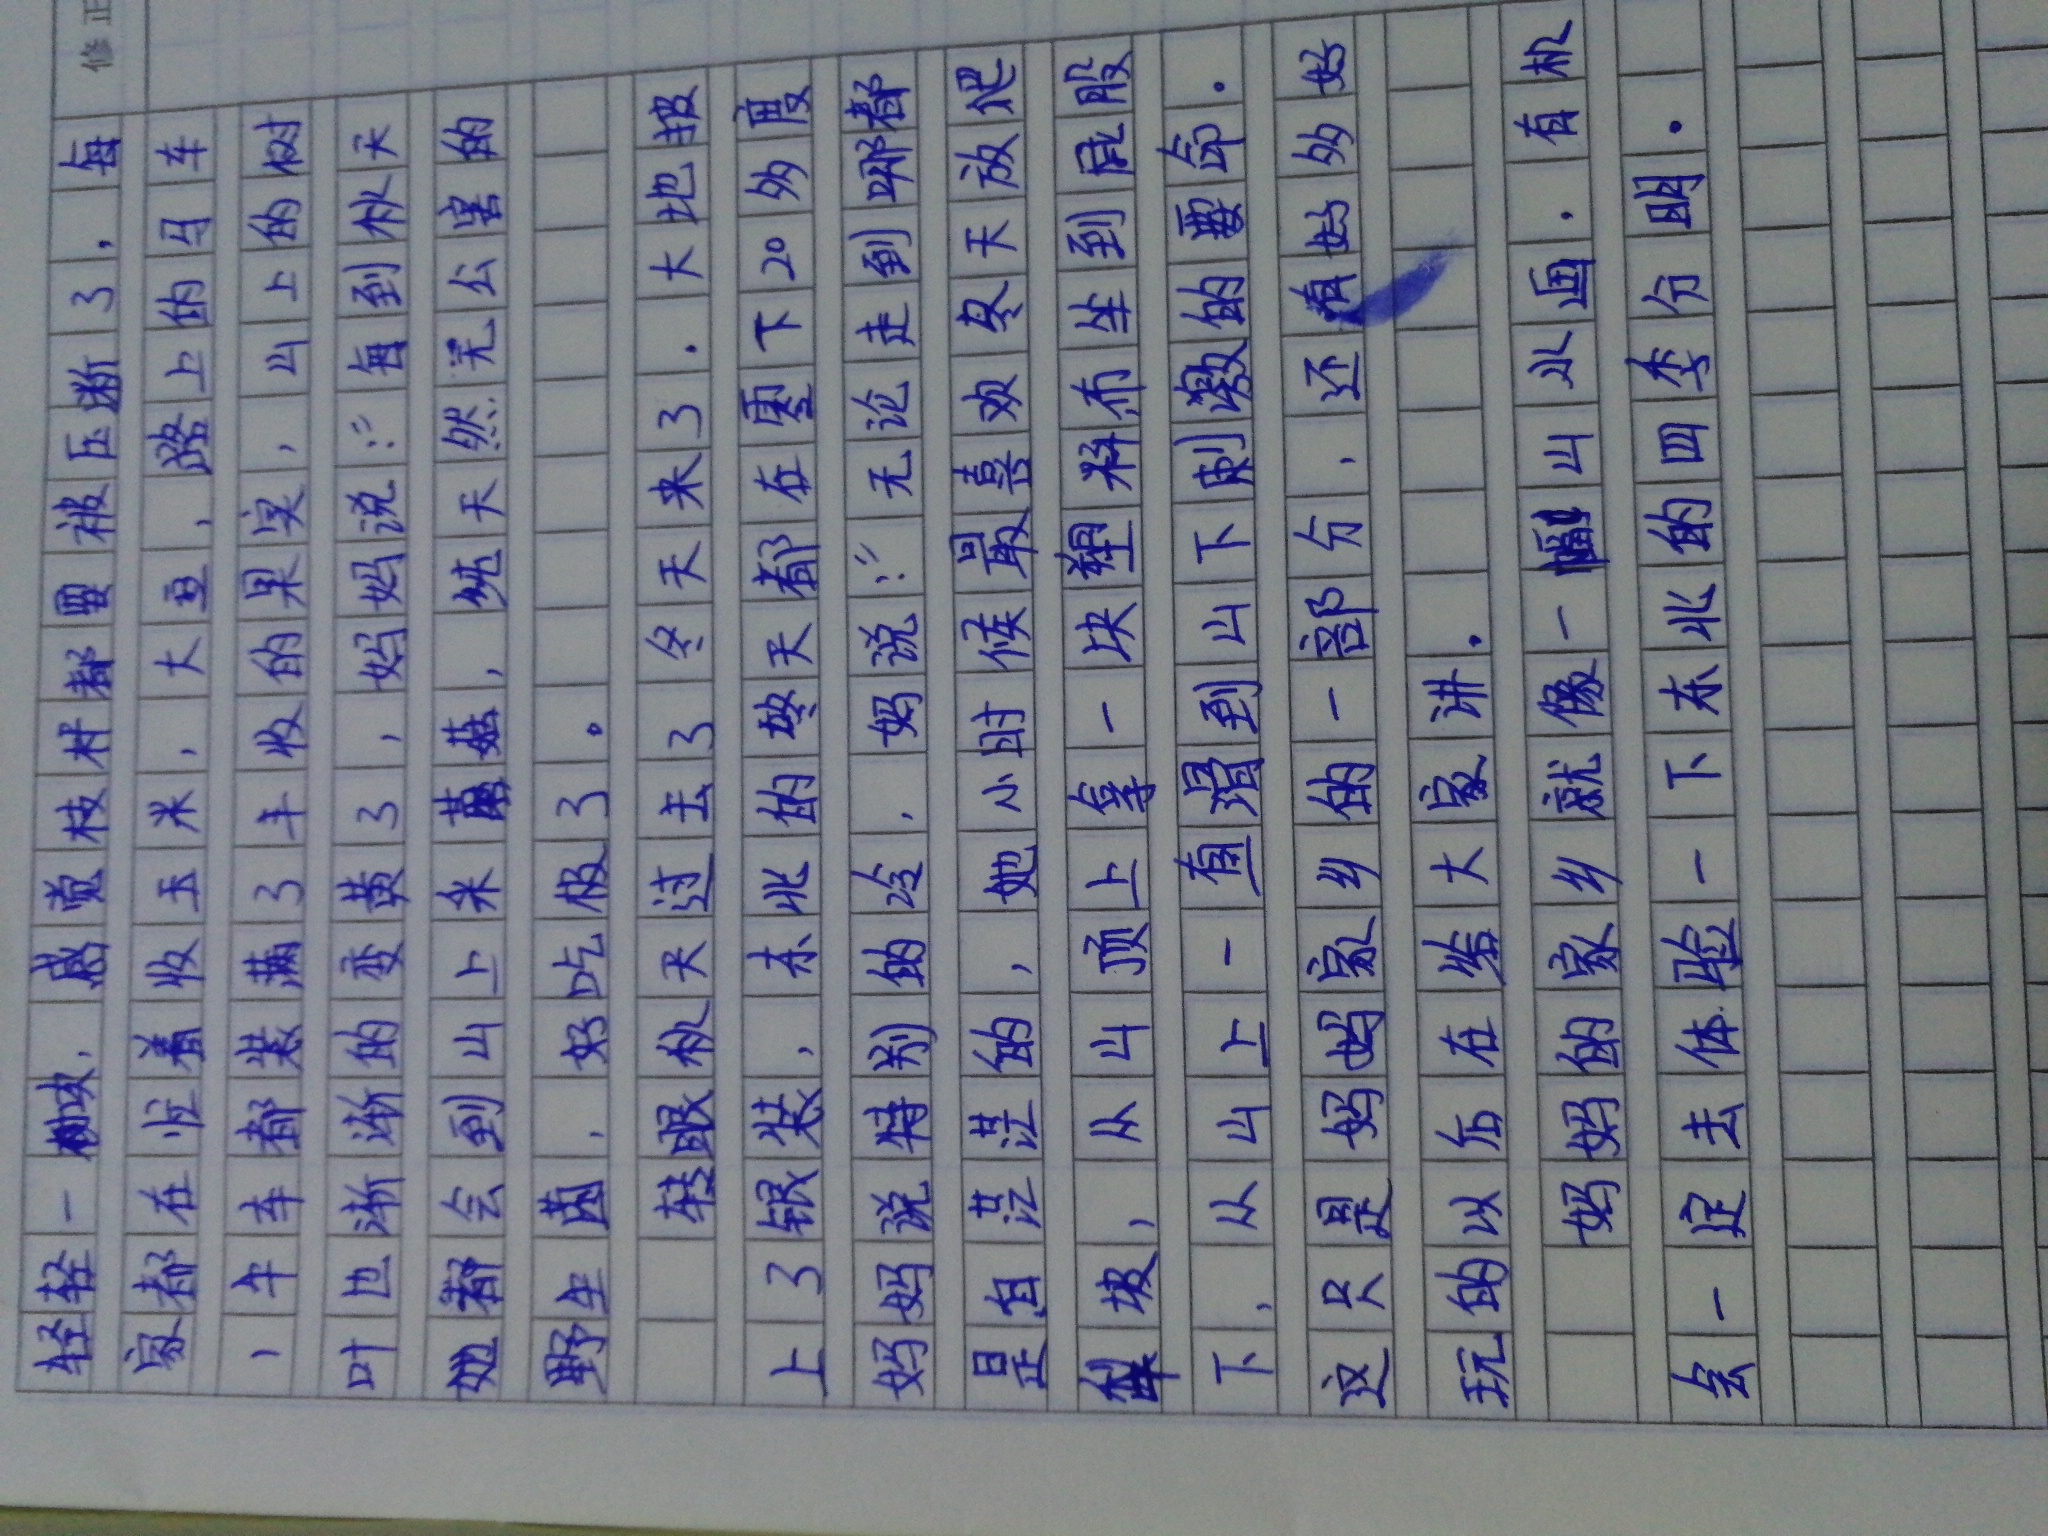 修正
轻轻一吹，感觉枝杆都要被压断了，每
家都在忙着收玉米，大豆，路上的马车
，牛车都装满了丰收的果实，山上的树
叶也渐渐的变黄了，妈妈说：“每到秋天
她都会到山上采蘑菇，纯天然无公害的
野生菌，好吃极了。
转眼秋天过去了冬天来了．大地披
上了银装，东北的冬天都在零下20多度
妈妈说特别的冷．妈说：“无论走到哪都
是白茫茫的，她小时候最喜欢冬天放
坡，从山顶上拿一块塑料布坐到屁股
下，从山上一直滑到山下刺激的要命．
这只是妈妈家乡的一部分，还有好多好
玩的以后在给大家讲．
妈妈的家乡就像一幅山水画．有机
会一定去体验一下东北的四季分明．